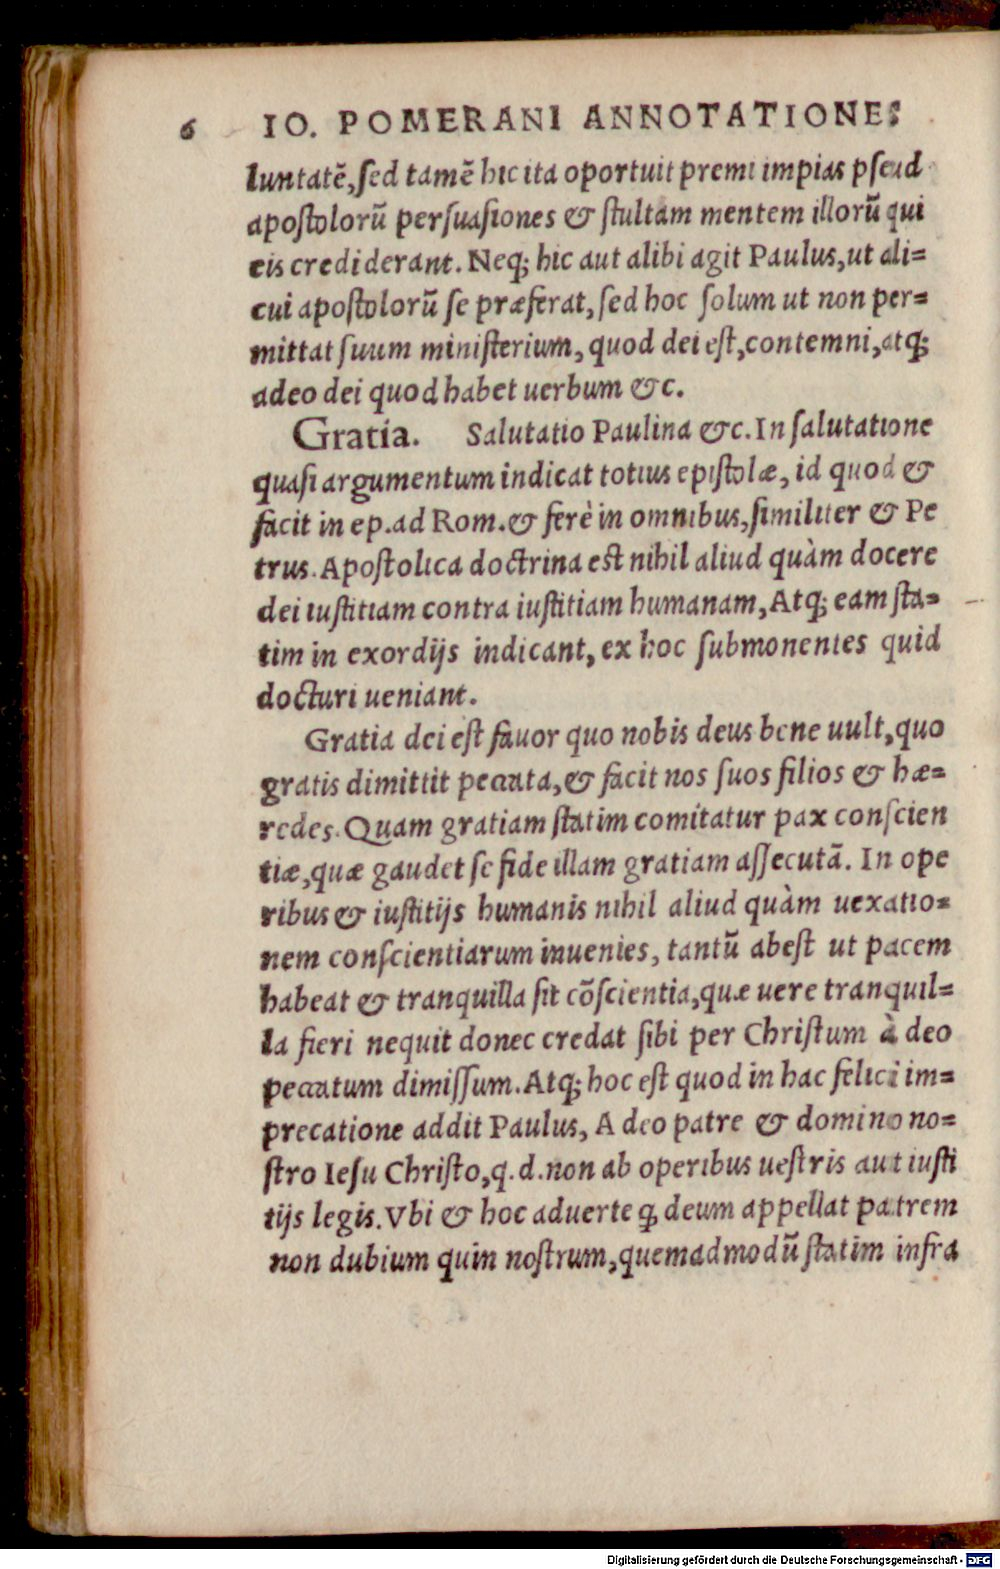 6 IO. POMERANI ANNOTATIONES
luntatē, sed tamē hic ita oportuit premi impias pseud
apostolorū persuasiones & stultam mentem illorū qui
eis crediderant. Neq; hic aut alibi agit Paulus, ut ali=
cui apostolorū se præferat, sed hoc solum ut non per=
mittat suum ministerium, quod dei est, contemni, atq;
adeo dei quod habet uerbum &c.
Gratia. Salutatio Paulina &c. In salutatione
quasi argumentum indicat totius epistolæ, id quod &
facit in ep. ad Rom. & ferè in omnibus, similiter & Pe
trus. Apostolica doctrina est nihil aliud quàm docere
dei iustitiam contra iustitiam humanam, Atq; eam sta=
tim in exordijs indicant, ex hoc submonentes quid
docturi ueniant.
Gratia dei est fauor quo nobis deus bene uult, quo
gratis dimittit peccata, & facit nos suos filios & hæ=
redes. Quam gratiam statim comitatur pax conscien
tiæ, quæ gaudet se fide illam gratiam assecutā. In ope
ribus & iustitijs humanis nihil aliud quàm uexatio=
nem conscientiarum inuenies, tantū abest ut pacem
habeat & tranquilla sit cōscientia, quæ uere tranquil=
la fieri nequit donec credat sibi per Christum à deo
peccatum dimissum. Atq; hoc est quod in hac felici im=
precatione addit Paulus, A deo patre & domino no=
stro Iesu Christo, q. d. non ab operibus uestris aut iusti
tijs legis. Vbi & hoc aduerte ꝙ deum appellat patrem
non dubium quin nostrum, quemadmodū statim infra
Digitalisierung gefördert durch die Deutsche Forschungsgemeinschaft - DFG